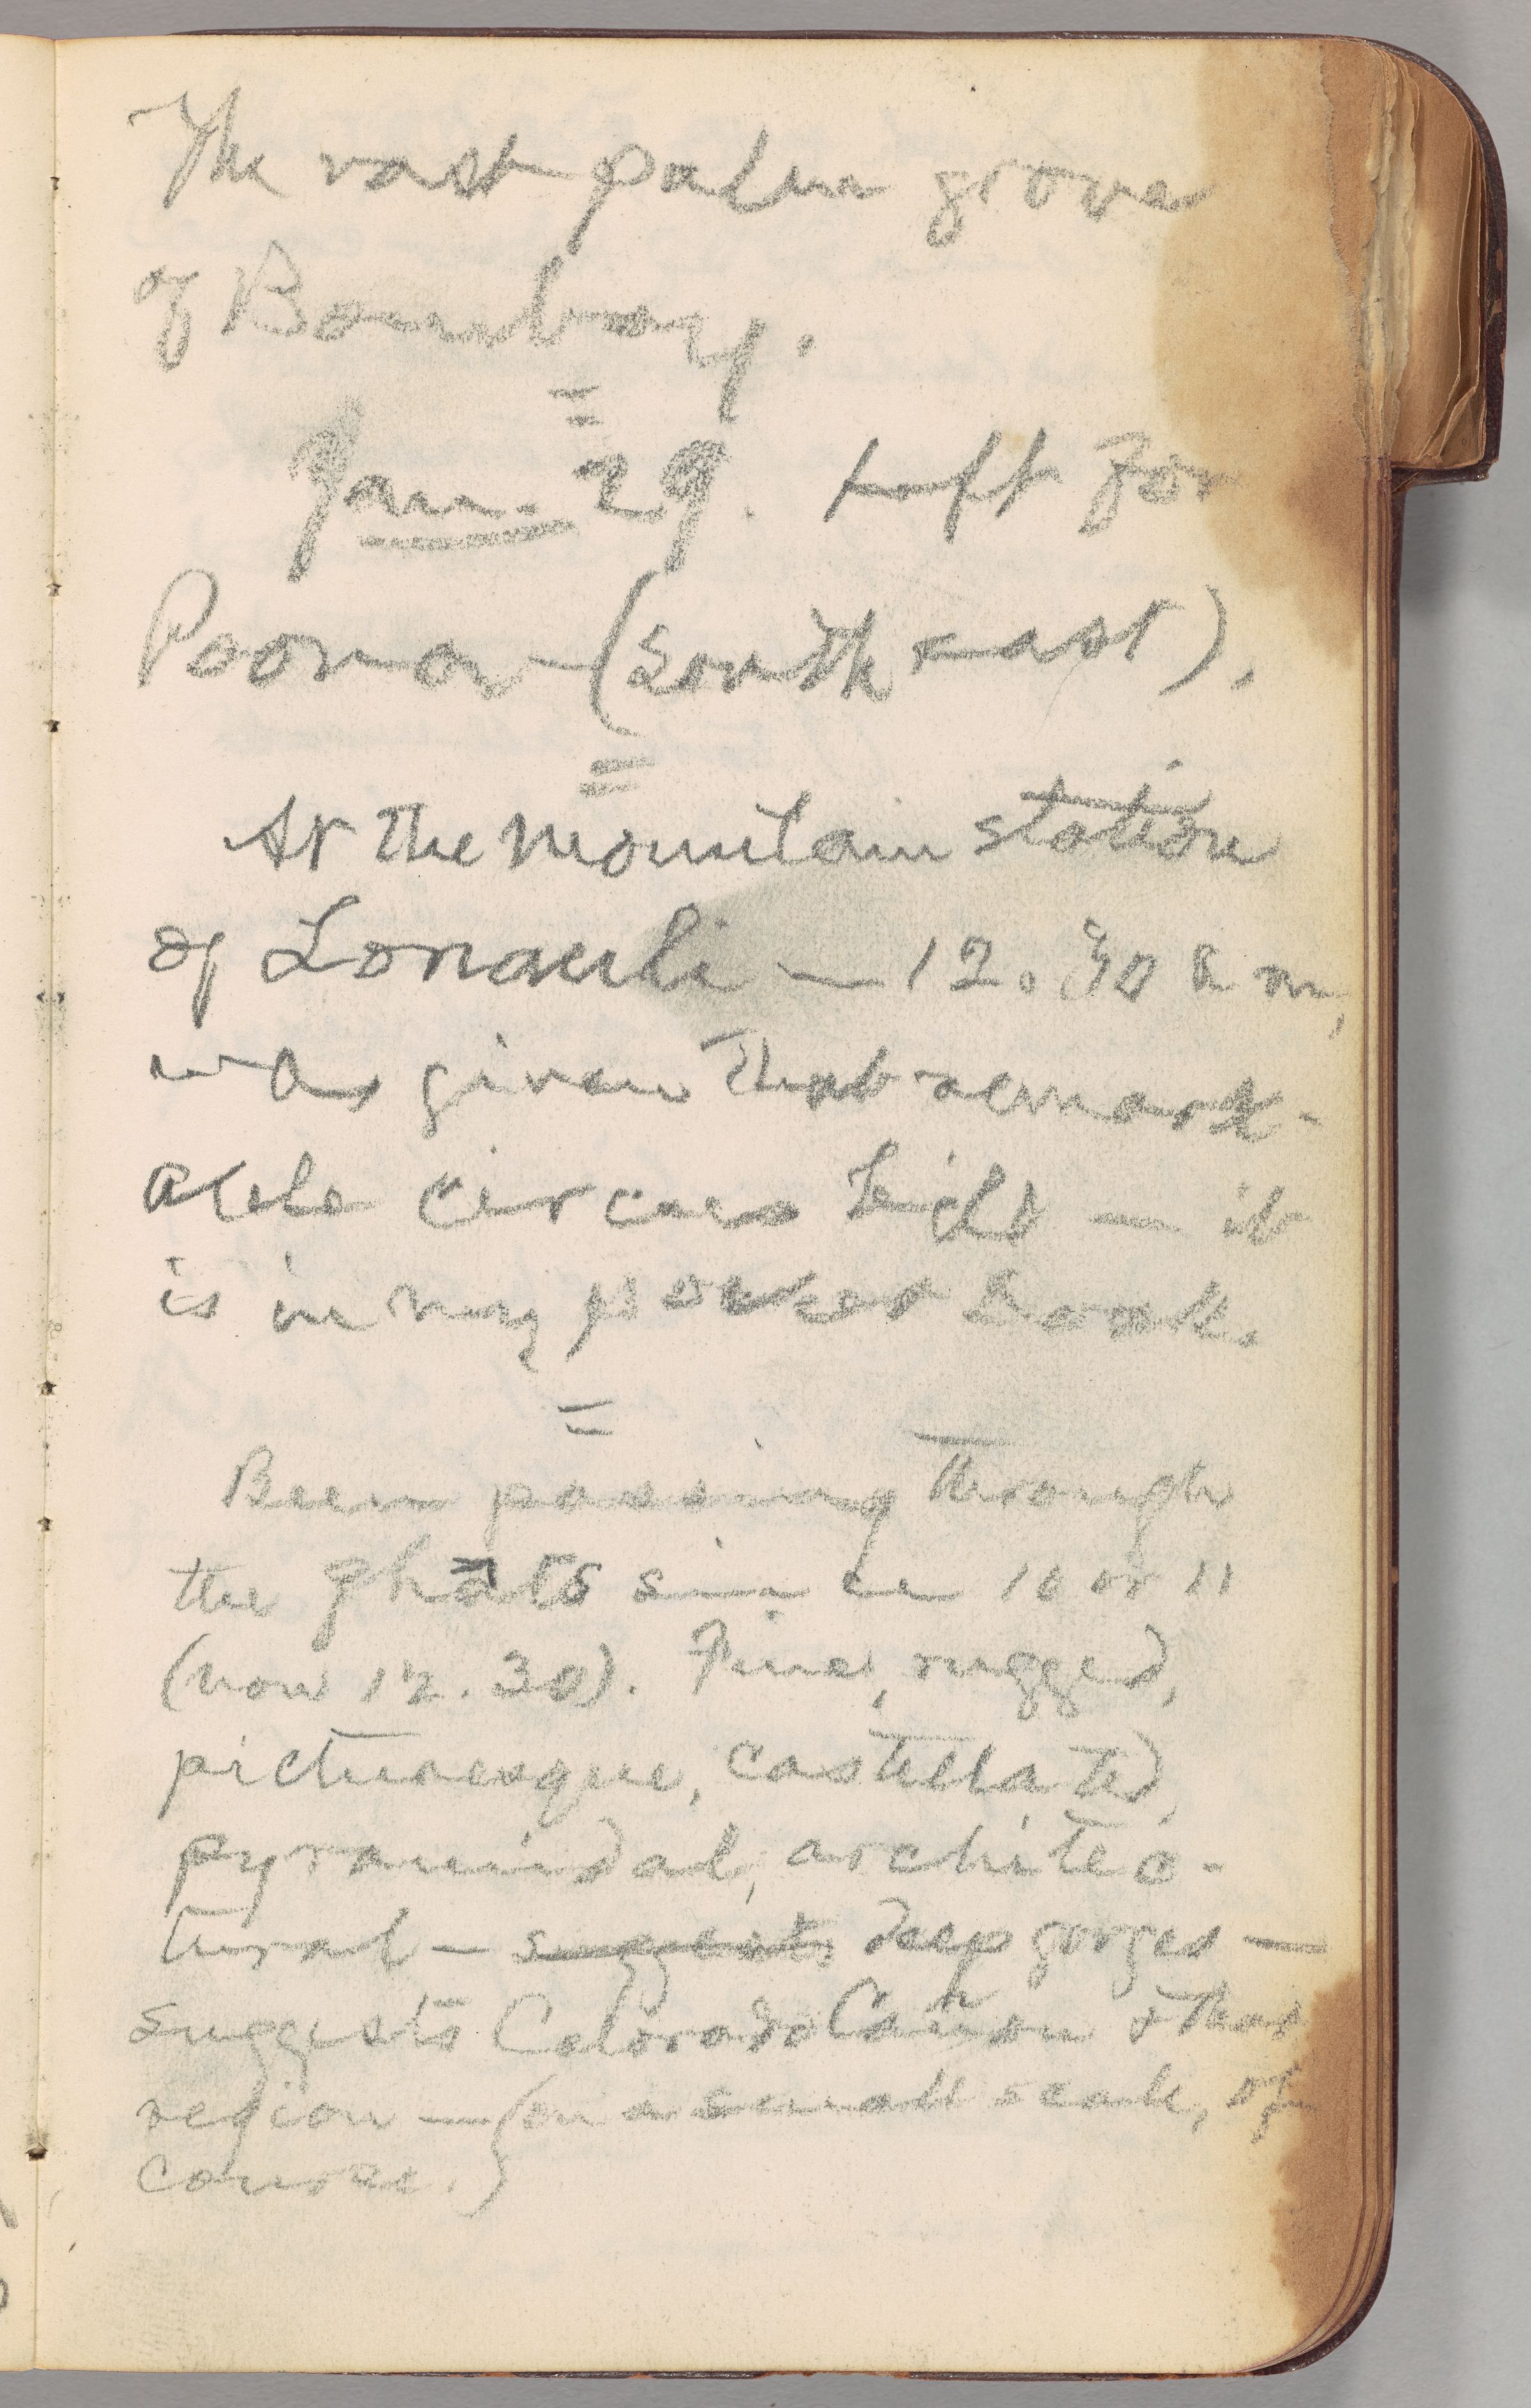 The vast palm grove
of Bombay.
=
Jan. 29. Left for
Poona (southeast).
=
At the mountain station
of Lonauli — 12.30 a m,
was given that remark-
able circus bill — it
is in my pocket book.
=
Been passing through
the ghats since 10 or 11
(now 12.30). Fine, rugged,
picturesque, castellated,
pyramidal, architec-
tural — suggests deep gorges —
suggests Colorado Cañon & that
region — (on a small scale, of
course.)